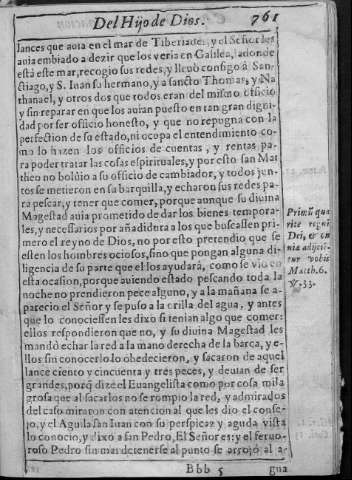 Del Hijo de Dios. 761
lances que auia en el mar de Tiberiades, y el Señor les
auia embiado a dezir que los veria en Galilea, adonde
está este mar, recogio sus redes, y lleuò consigo à San-
ctiago, y S. Iuan su hermano, y a sancto Thomas, y Na
thanael, y otros dos que todos eran del mismo officio
y sin reparar en que los auian puesto en tan gran digni-
dad por ser officio honesto, y que no repugna con la
perfection de su estado, ni ocupa el entendimiento co-
mo lo hazen los officios de cuentas, y rentas pa-
ra poder tratar las cosas espirituales, y por esto san Mat
theo no boluio a su officio de cambiador, y todos jun-
tos se metieron en su barquilla, y echaron sus redes pa-
ra pescar, y tener que comer, porque aunque su diuina
Magestad auia prometido de dar los bienes tempora-
les, y necessarios por añadidura a los que buscassen pri-
mero el reyno de Dios, no por esto pretendio que se
esten los hombres ociosos, sino que pongan alguna di-
ligencia de su parte que el los ayudará, como se vio en
esta ocasion, porque auiendo estado pescando toda la
noche no prendieron pece alguno, y a la mañana se a-
parecio el Señor y se puso a la orilla del agua, y antes
que lo conociessen les dixo si tenian algo que comer:
ellos respondieron que no, y su diuina Magestad les
mandó echar la red a la mano derecha de la barca, y e-
llos sin conocerlo lo obedecieron, y sacaron de aquel
lance ciento y cincuenta y tres peces, y deuian de ser
grandes, porq̃ dizé el Euangelista como por cosa mila
grosa que al sacarlos no se rompio la red, y admirados
del caso miraron con atencion al que les dio el conse-
jo, y el Aguila san Iuan con su perspicaz y aguda vista
lo conocio, y dixo a san Pedro, El Señor es: y el feruo-
roso Pedro sin mas detenerse al punto se arrojó al a-
Bbb 5 gua
Primũ quæ
rite regnũ
Dei, & om
nia adijcié
tur vobis
Matth. 6.
℣. 33.